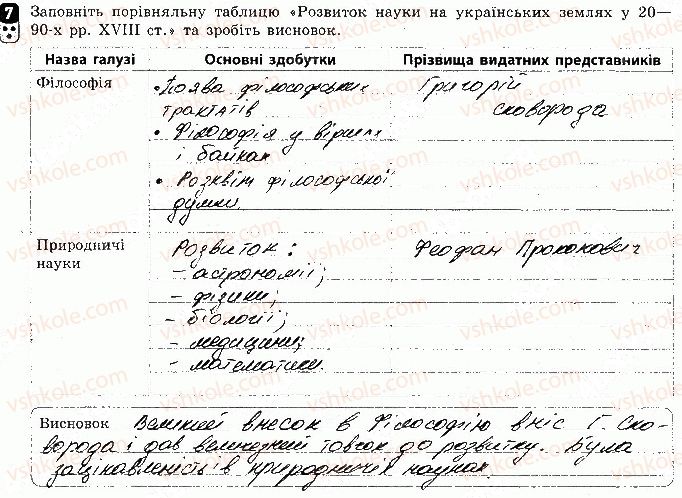 7 Заповніть порівняльну таблицю «Розвиток науки на українських землях у 20—
90-х рр. XVIII ст.» та зробіть висновок.
Назва галузі Основні здобутки Прізвища видатних представників
Філософія
• Поява філософських
трактатів
• Філософія у віршах
і байках
• Розквіт філософської
думки.
Григорій
сковорода
Природничі
науки
Розвиток:
- астрономії;
- фізики;
- біології;
- медицини;
- математики.
Феофан Прокопович
Висновок Великий внесок в Філософію вніс Г. Ско-
ворода і дав величезний товчок до розвитку. Була
зацікавленість в природничих науках.
vshkole.com